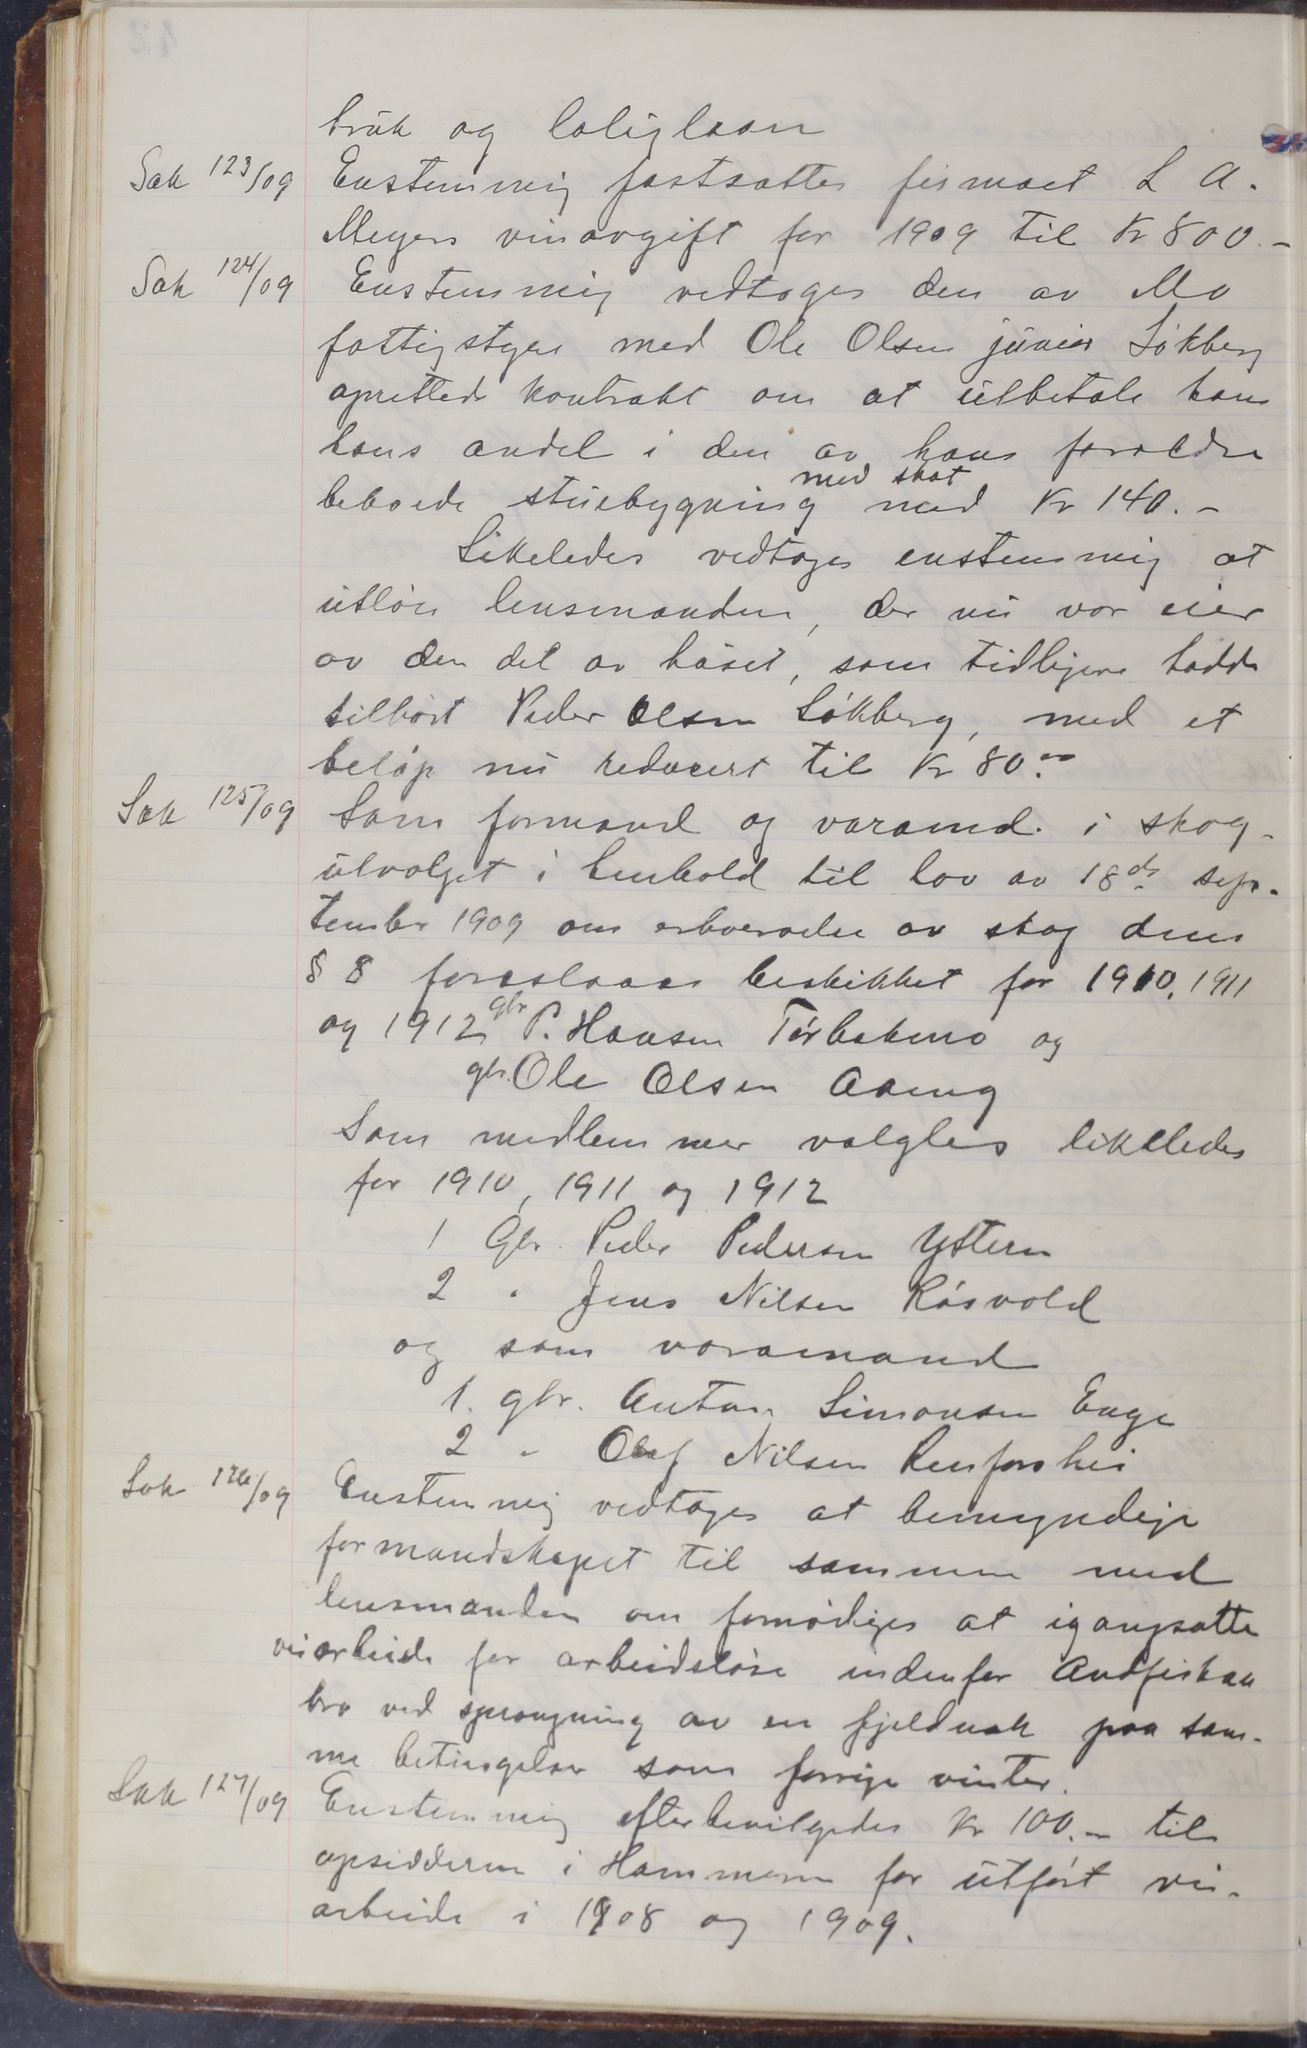 bruk og boliglaan
Sak 123/09 Enstemmig fastsattes firmaet L A.
Meyers vinavgift for 1909 til Kr 800.-
Sak 124/09 Enstemmig vedtoges den av Mo
fattigstyre med Ole Olsen junior Løkberg
oprettede kontrakt om at utbetale ham
hans andel i den av hans foraldre
beboede stuebygning med skat med Kr 140.-
Likeledes vedtoges enstemmig at
utløse lensmanden, der nu var eier
av den del av huset, som tidligere hadde
tilhørt Peder Olsen Løkberg, med et
beløp nu reducert til Kr 80.00
Sak 125/09 Som formand og varamd. i skog-
utvalget i henhold til lov av 18de sep-
tember 1909 om erhvervelse av skog dens
§ 8 foreslaaes beskikket for 1910, 1911
og 1912 gbr P. Hansen Tørbekmo og
gbr. Ole Olsen Aaeng
Som medlemmer valgtes likeledes
for 1910, 1911 og 1912
1 Gbr. Peder Pedersen Ytteren
2 " Jens Nilsen Røsvold
og som varamand
1. gbr. Anton Simonsen Enge
2 " Olaf Nilsen Renforshei
Sak 126/09 Enstemmig vedtoges at bemyndige
formandskapet til sammen med
lensmanden om fornødiges at igangsætte
veiarbeide for arbeidsløse indenfor Andfiskaa
bro ved sprængning av en fjeldnak paa sam-
me betingelser som forrige vinter.
Sak 127/09 Enstemmig efterbevilgedes Kr 100.- til
opsidderne i Hammeren for utført vei-
arbeide i 1908 og 1909.